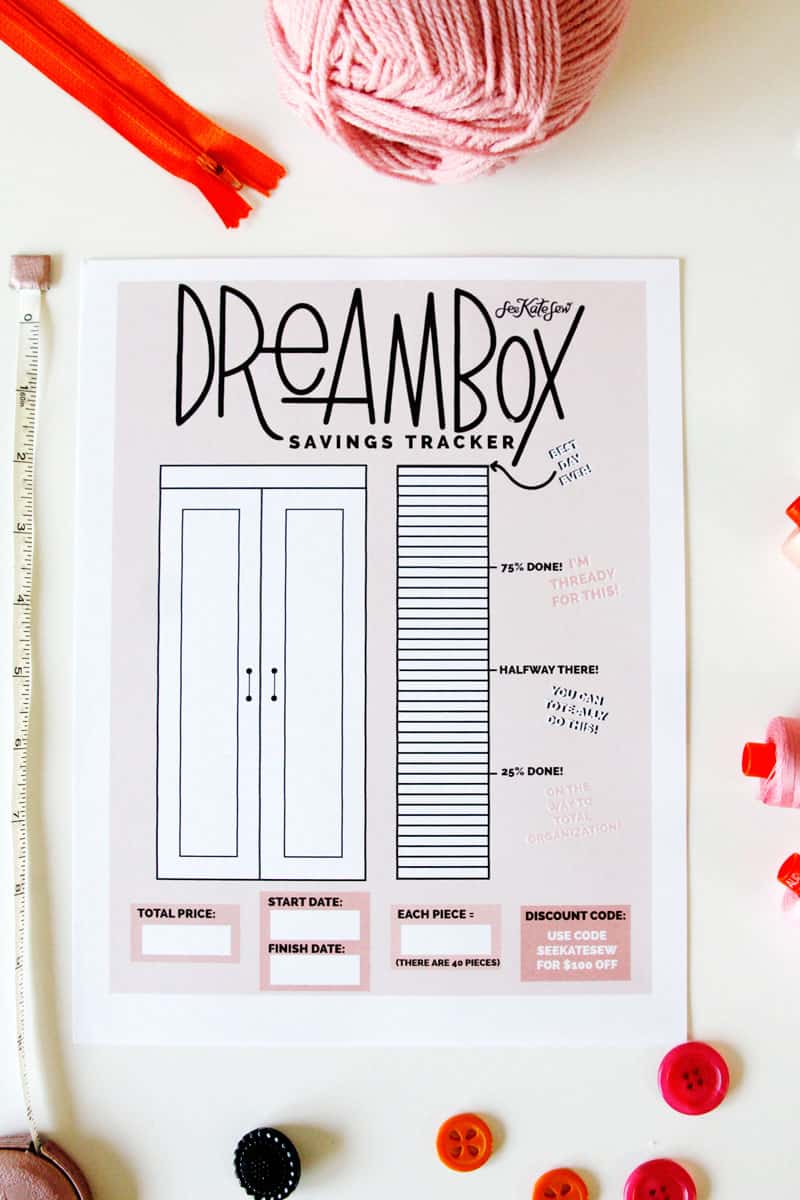 DREAMBOX
SeeKateSew
SAVINGS TRACKER
BEST
DAY
EVER!
75% DONE!
I'M
THREADY
FOR THIS!
HALFWAY THERE!
YOU CAN
TOTE-ALLY
DO THIS!
25% DONE!
ON THE
WAY TO
TOTAL
ORGANIZATION!
TOTAL PRICE:
START DATE:
FINISH DATE:
EACH PIECE =
(THERE ARE 40 PIECES)
DISCOUNT CODE:
USE CODE
SEEKATESEW
FOR $100 OFF
0
1
60in
2
3
4
5
6
7
8